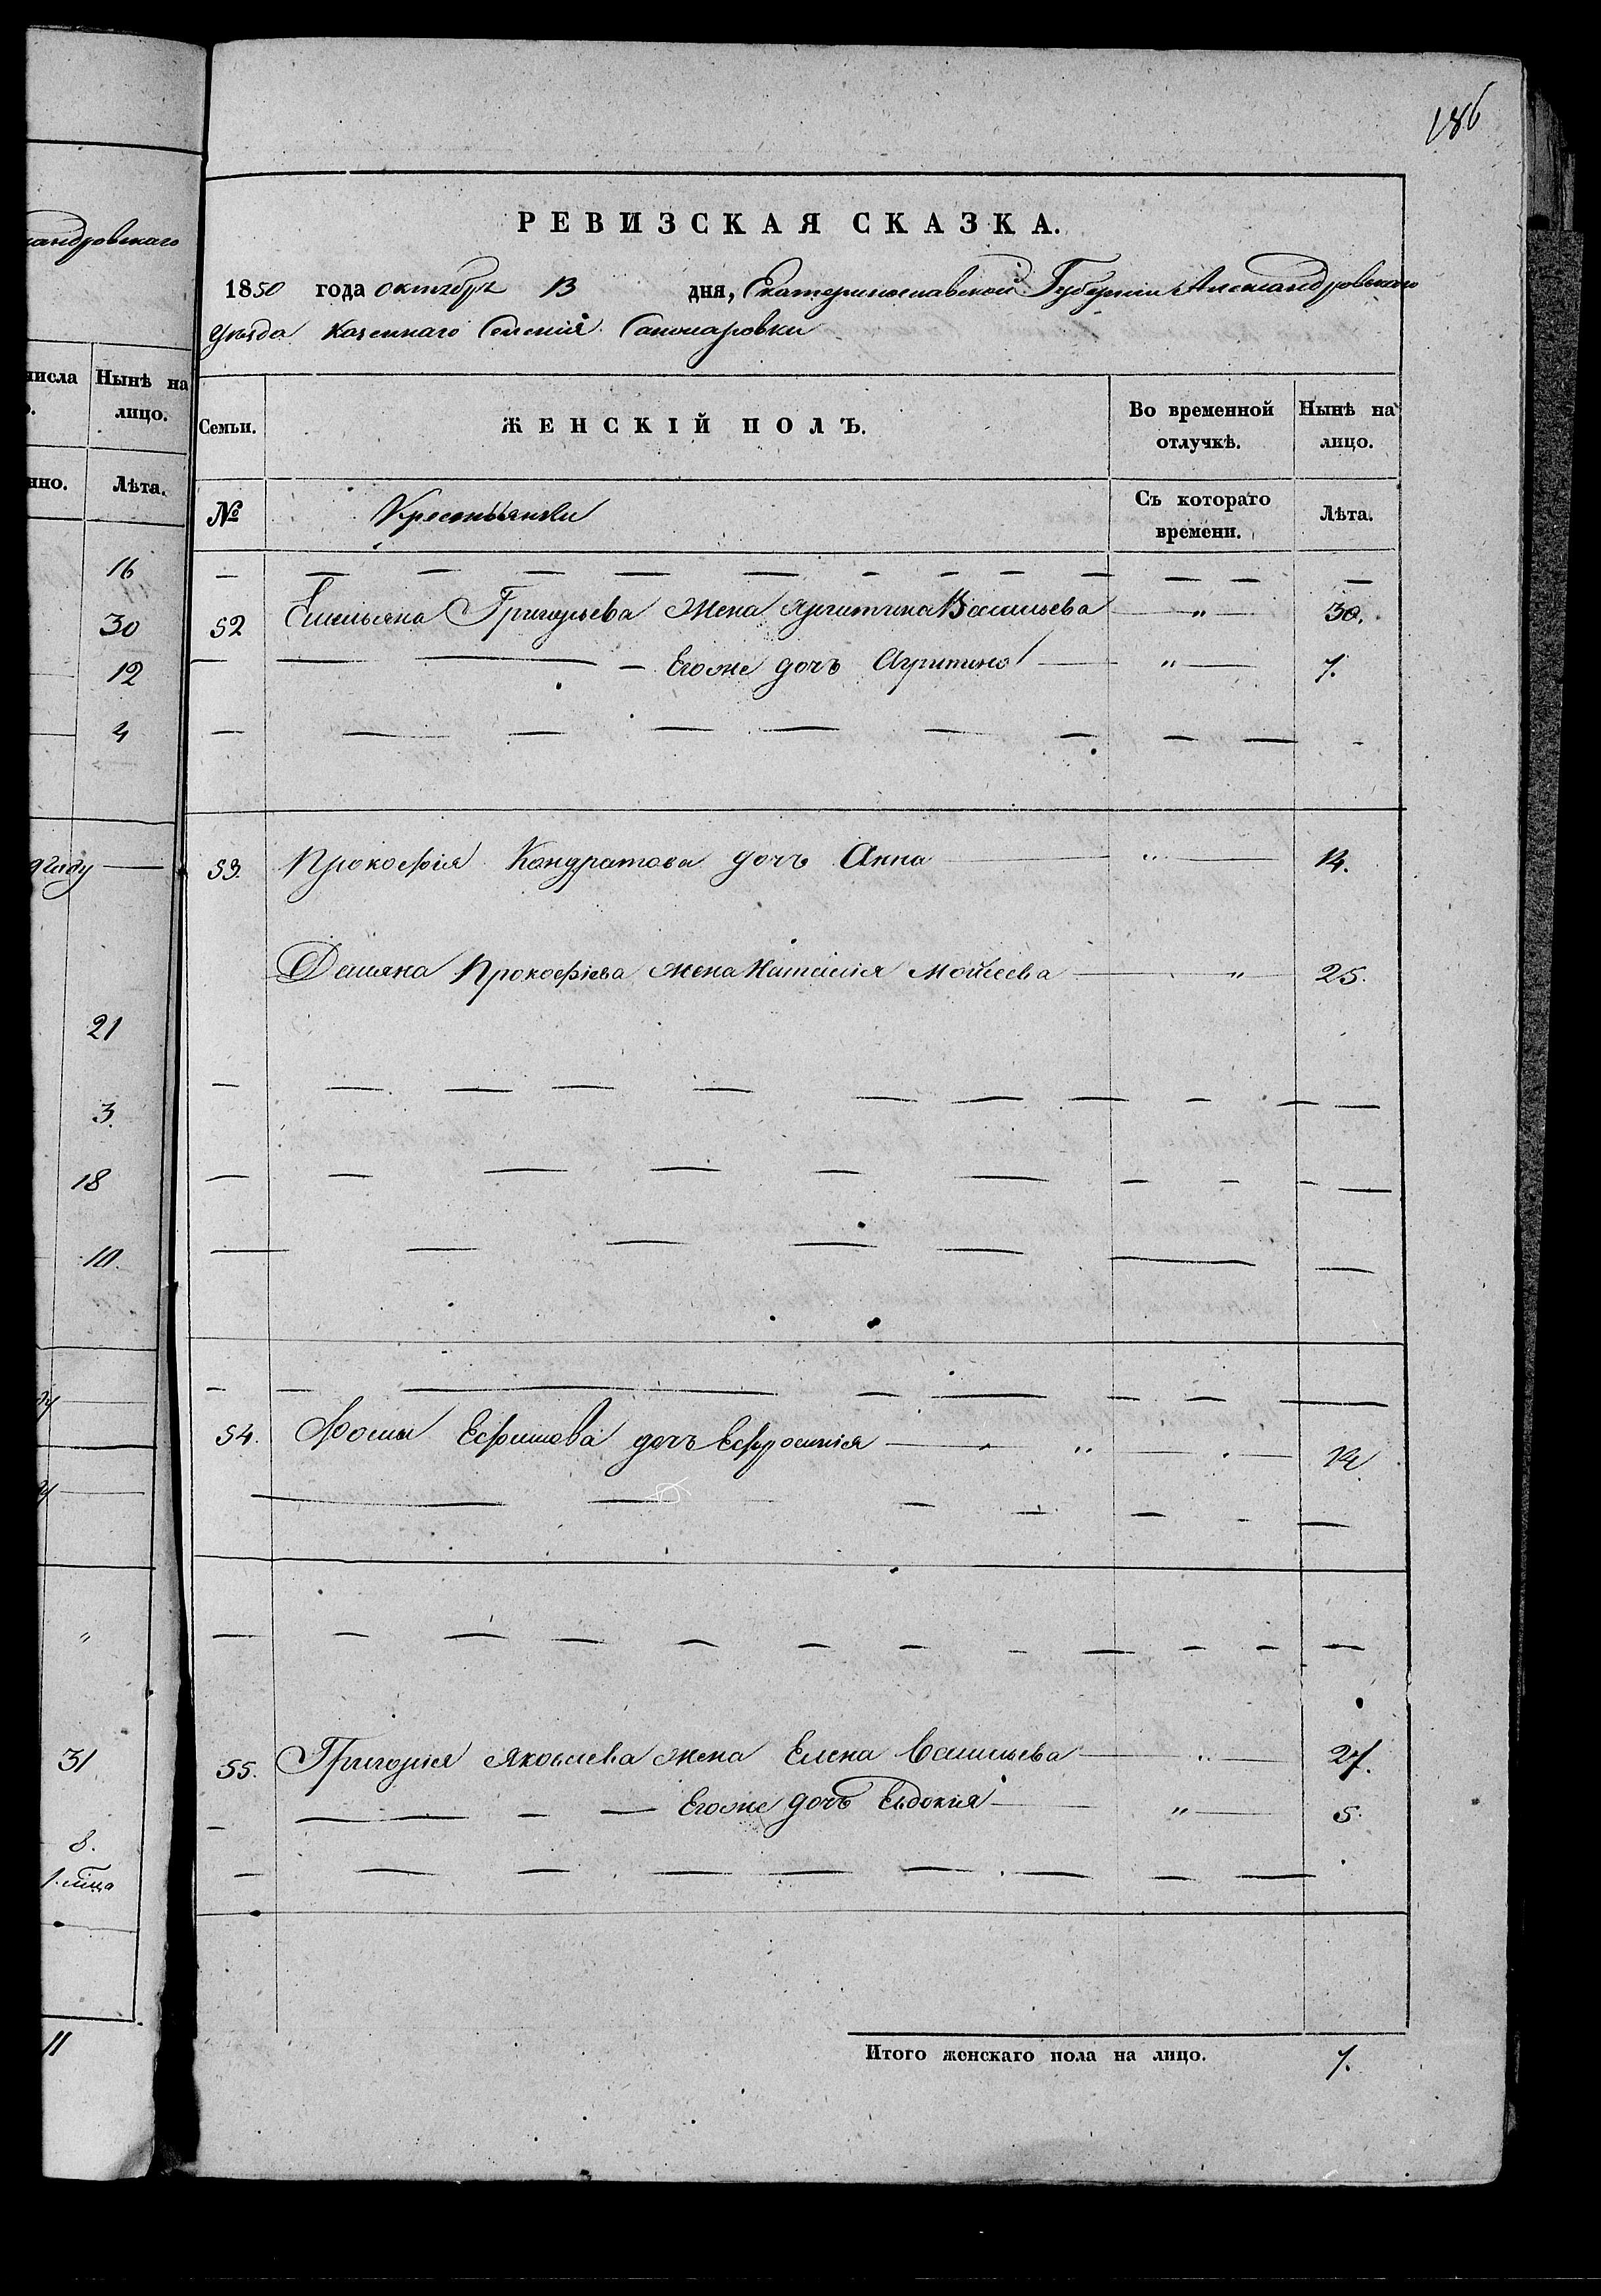 186
андровскаго
числа Нынѣ на
лицо.
нно. Лѣта.
16
30
12
4
21
3.
18
10.
"
31
8.
11
РЕВИЗСКАЯ СКАЗКА.
1850 года октября 13 дня, Екатеринославской Губерніи Александровскаго
уѣзда казеннаго Селенія
Семьи. ЖЕНСКІЙ ПОЛЪ. Во временной отлучкѣ. Нынѣ на лицо.
№ Крестьянки Съ котораго времени. Лѣта.
52 Емельяна Григорьева жена Васильева " 30.
Егоже дочь Агрипина " 7.
53. Прокофія Кондратова дочь Анна " 14.
Демяна Прокофіева жена Наталія Мойсеева " 25.
54. Фомы Ефимова дочь Ефросинія " 14
55. Григорія Яковлева жена Елена Васильева " 27.
Егоже дочь Евдокія " 5.
Итого женскаго пола на лицо. 7.